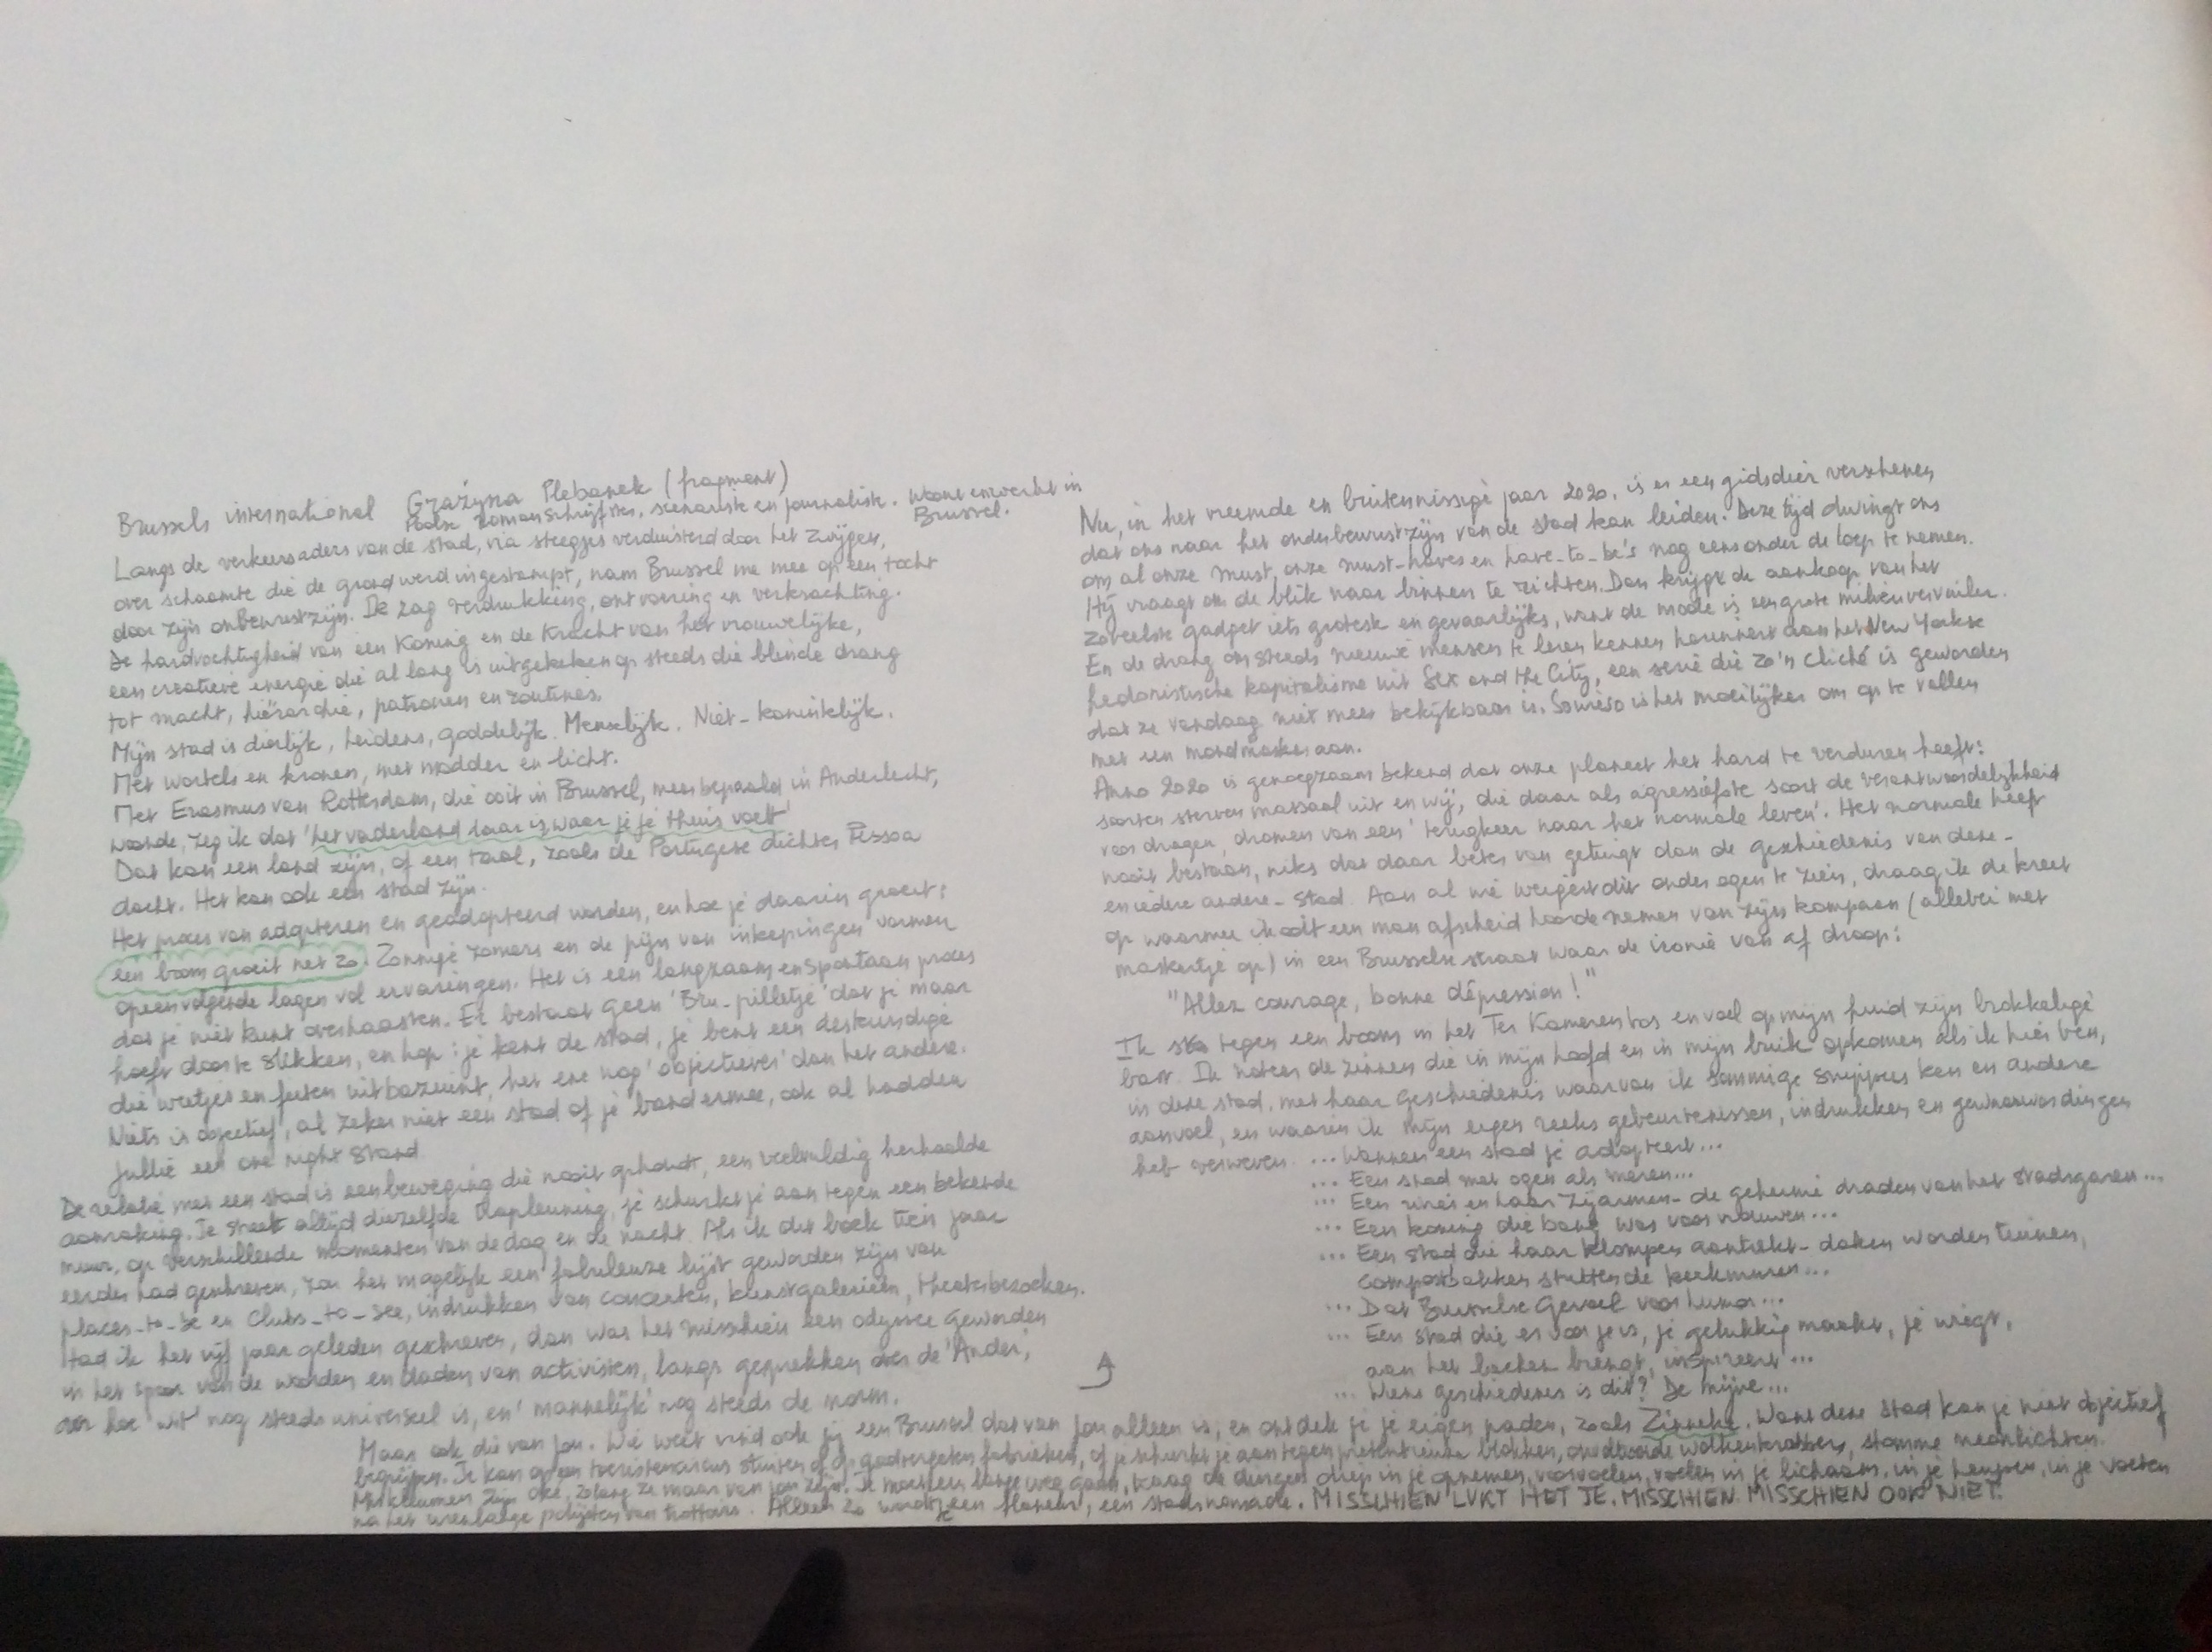 Brussels international Grażyna Plebanek (fragment)
Poolse romanschrijfster, scenariste en journaliste. Woont en werkt in
Brussel.
Langs de verkeersaders van de stad, via steegjes verduisterd door het zwijgen,
over schaamte die de grond werd ingestampt, nam Brussel me mee op een tocht
door zijn onbewustzijn. Ik zag verdrukking, ontvoering en verkrachting.
De hardvochtigheid van een Koning en de Kracht van het vrouwelijke,
een creatieve energie die al lang is uitgekeken op steeds die blinde drang
tot macht, hiërarchie, patronen en routines.
Mijn stad is dierlijk, heidens, goddelijk. Menselijk. Niet-koninklijk.
Met wortels en kronen, met modder en licht.
Met Erasmus van Rotterdam, die ooit in Brussel, meer bepaald in Anderlecht,
woonde, zeg ik dat 'het vaderland daar is waar je je thuis voelt'
Dat kan een land zijn, of een taal, zoals de Portugese dichter Pessoa
dacht. Het kan ook een stad zijn.
Het proces van adopteren en geadopteerd worden, en hoe je daarin groeit:
een boom groeit net zo. Zonnige zomers en de pijn van inkepingen vormen
opeenvolgende lagen vol ervaringen. Het is een langzaam en spontaan proces
dat je niet kunt overhaasten. Er bestaat geen 'Bru-pilletje' dat je maar
hoeft door te slikken, en hop: je kent de stad, je bent een deskundige
die weetjes en feiten uitbazuint, het ene nog 'objectiever' dan het andere.
Niets is objectief, al zeker niet een stad of je band ermee, ook al hadden
jullie een one night stand
De relatie met een stad is een beweging die nooit ophoudt, een veelvuldig herhaalde
aanraking. Je streelt altijd diezelfde trapleuning, je schurkt je aan tegen een bekende
muur, op verschillende momenten van de dag en de nacht. Als ik dit boek tien jaar
eerder had geschreven, zou het mogelijk een fabuleuze lijst geworden zijn van
places-to-be en clubs-to-see, indrukken van concerten, kunstgalerieën, theaterbezoeken.
Had ik het vijf jaar geleden geschreven, dan was het misschien een odyssee geworden
in het spoor van de woorden en daden van activisten, langs gesprekken over de 'Ander',
over hoe 'wit' nog steeds universeel is, en 'mannelijk' nog steeds de norm.
Nu, in het vreemde en buitennissige jaar 2020, is er een gidsdier verschenen
dat ons naar het onderbewustzijn van de stad kan leiden. Deze tijd dwingt ons
om al onze must, onze must-haves en have-to-be's nog eens onder de loep te nemen.
Hij vraagt om de blik naar binnen te richten. Dan krijgt de aankoop van het
zoveelste gadget iets grotesk en gevaarlijks, want de mode is een grote milieuvervuiler.
En de drang om steeds nieuwe mensen te leren kennen herinnert aan het New Yorkse
hedonistische kapitalisme uit Sex and the City, een serie die zo'n cliché is geworden
dat ze vandaag niet meer bekijkbaar is. Sowieso is het moeilijker om op te vallen
met een mondmasker aan.
Anno 2020 is genoegzaam bekend dat onze planeet het hard te verduren heeft:
soorten sterven massaal uit en wij, die daar als agressiefste soort de verantwoordelijkheid
voor dragen, dromen van een 'terugkeer naar het normale leven'. Het normale heeft
nooit bestaan, niks dat daar beter van getuigt dan de geschiedenis van deze-
en iedere andere-stad. Aan al wie weigert dit onder ogen te zien, draag ik de kreet
op waarmee ik ooit een man afscheid hoorde nemen van zijn kompaan (allebei met
maskertje op) in een Brusselse straat waar de ironie van af droop:
"Allez courage, bonne dépression!"
Ik sta tegen een boom in het Ter Kamerenbos en voel op mijn huid zijn brokkelige
bast. Ik noteer de zinnen die in mijn hoofd en in mijn buik opkomen als ik hier ben,
in deze stad, met haar geschiedenis waarvan ik sommige snippers ken en andere
aanvoel, en waarin ik mijn eigen reeks gebeurtenissen, indrukken en gewaarwordingen
heb verweven. ... Wanneer een stad je adopteert...
... Een stad met ogen als meren...
... Een rivier en haar zijarmen- de geheime draden van het stadsgaren...
... Een koning die bang was voor vrouwen...
... Een stad die haar klompen aantrekt- daken worden tuinen,
compostbakken stutten de kerkmuren...
... Dat Brusselse Gevoel voor humor...
... Een stad die er voor je is, je gelukkig maakt, je wiegt,
aan het lachen brengt, inspireert...
... Wiens geschiedenis is dit? De mijne...
Maar ook die van jou. Wie weet vind ook jij een Brussel dat van jou alleen is, en ontdek je je eigen paden, zoals Zinneke. Want deze stad kan je niet objectief
begrijpen. Je kan op een toeristencircus stuiten of op godvergeten fabrieken, of je schurkt je aan tegen pretentieuze blokken, wolkenkrabbers, stomme neonlichten.
Miskleunen zijn oké, zolang ze maar van jou zijn. Je moet een lange weg gaan, traag de dingen diep in je opnemen, voorvoelen, voelen in je lichaam, in je heupen, in je voeten
na het urenlange polijsten van trottoirs. Alleen zo word je een flaneur, een stadsnomade. MISSCHIEN LUKT HET JE. MISSCHIEN. MISSCHIEN OOK NIET.